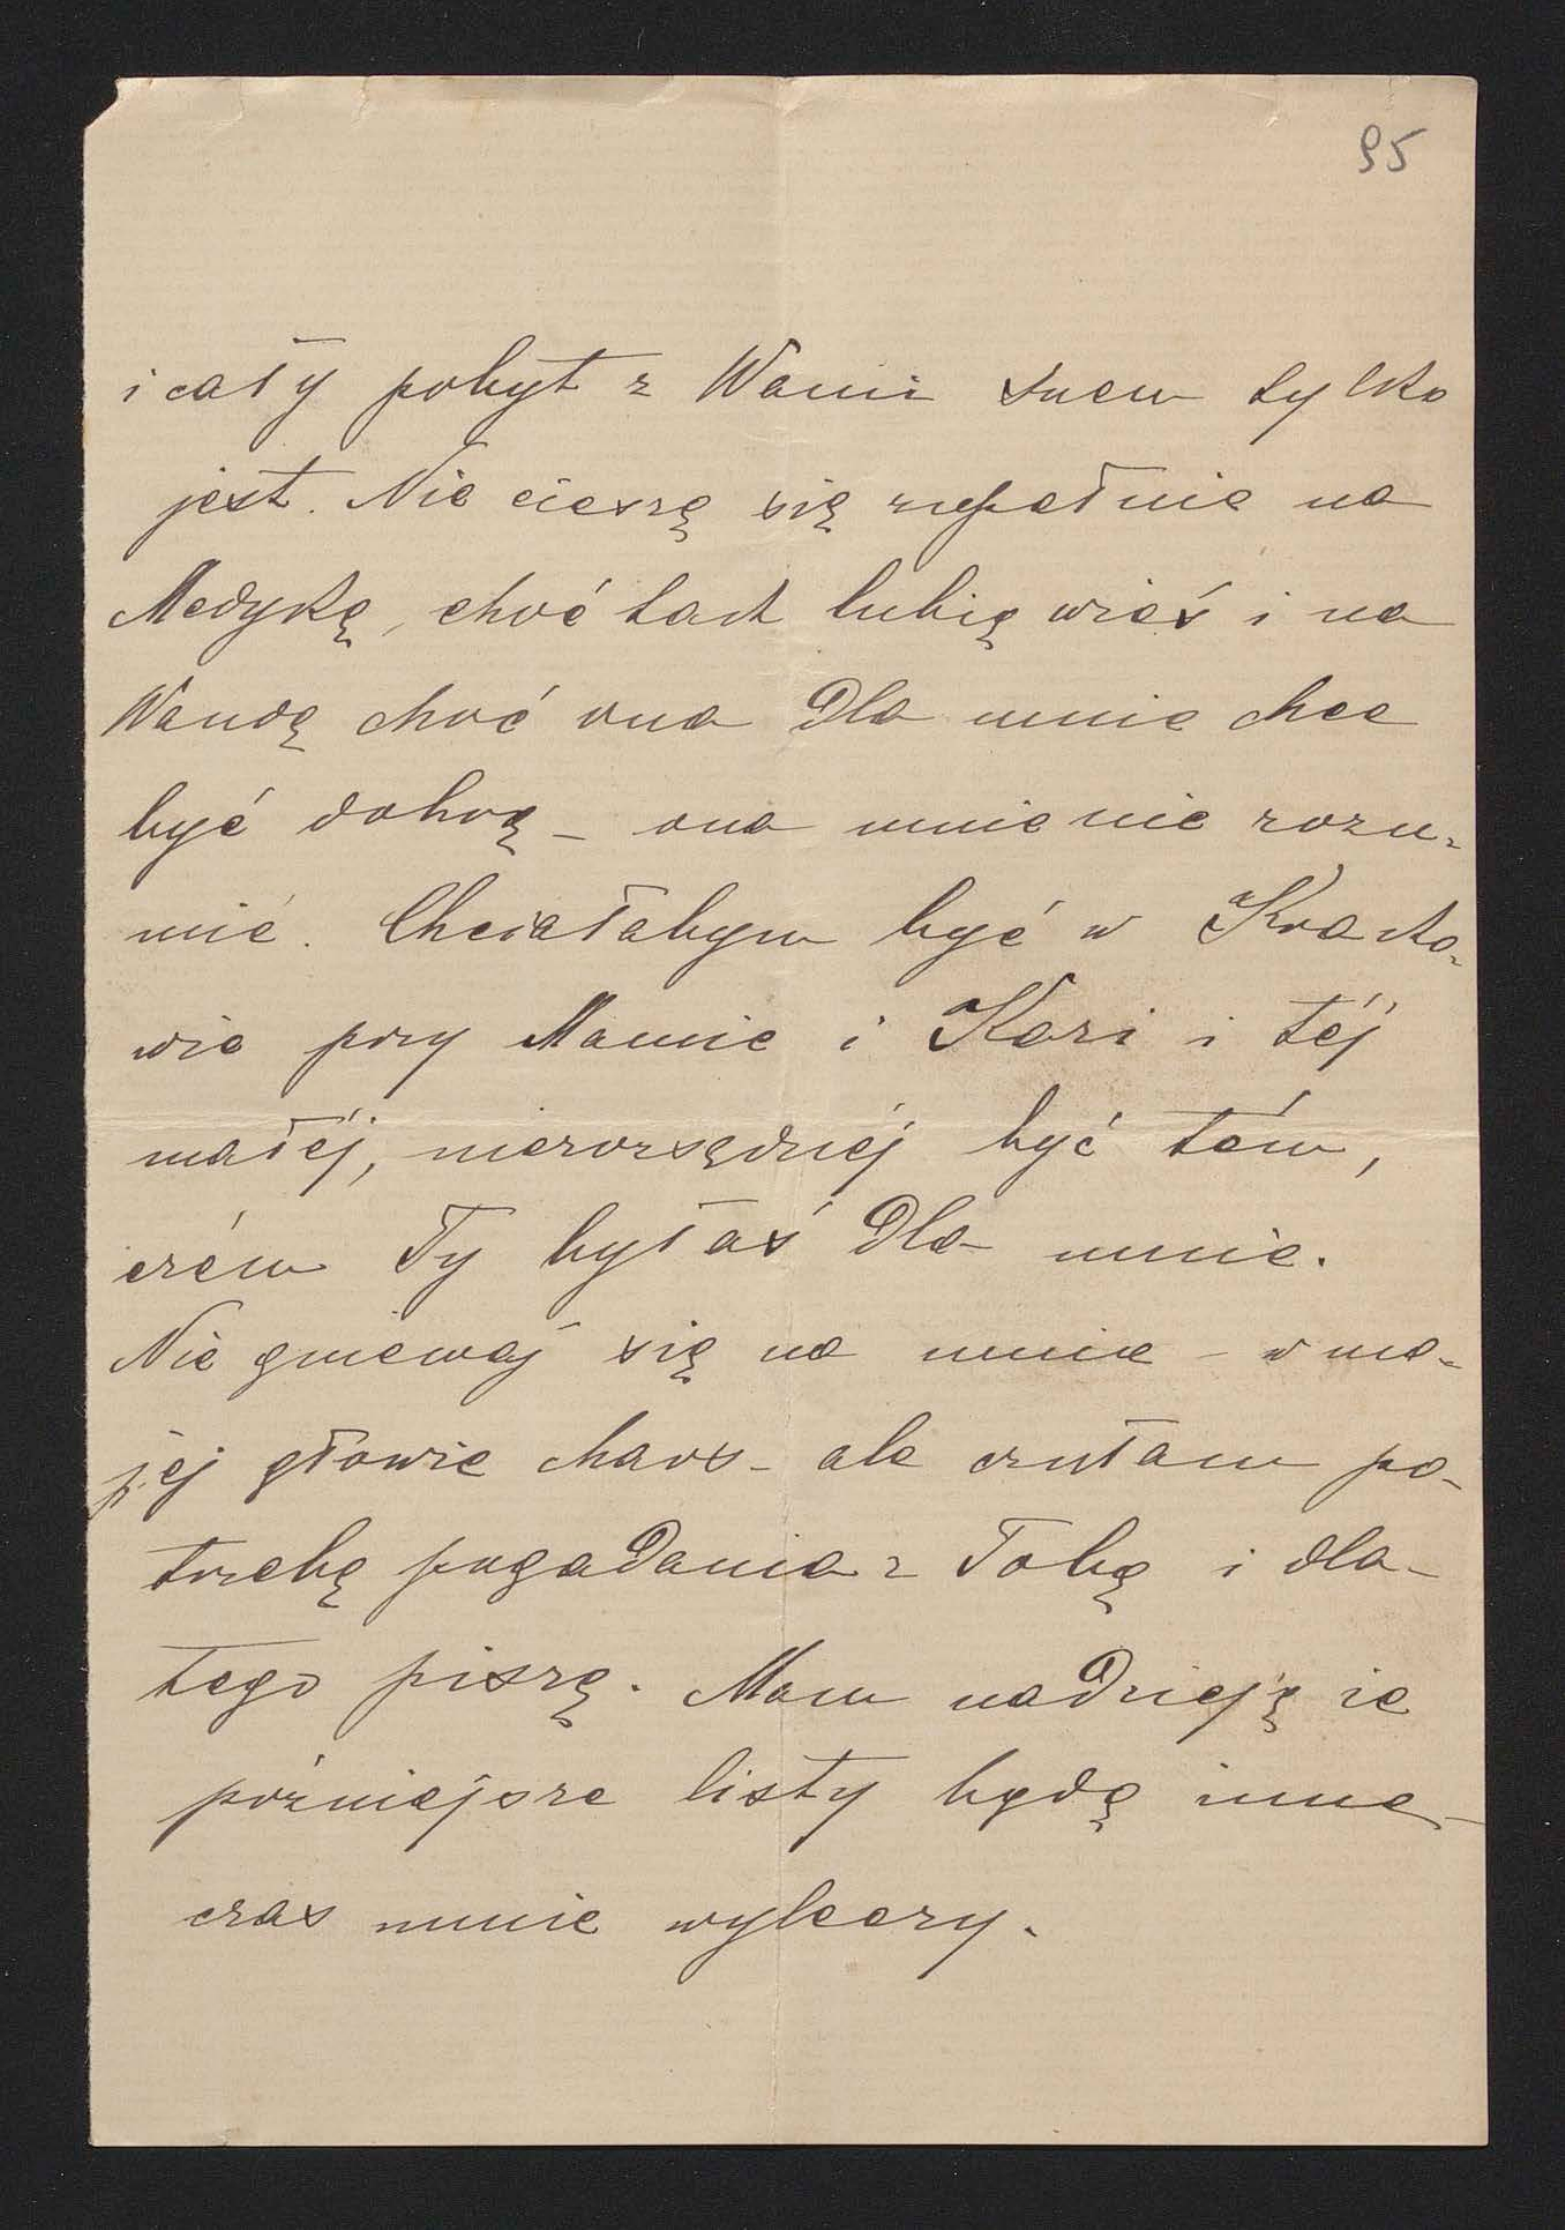 95
i cały pobyt z Wami snem tylko
jest. Nie cieszę się zupełnie na
Medykę, choć tak lubię wieś i na
Wandę choć ona dla mnie chce
być dobrą – ona mnie nie rozu-
mié. Chciałabym być w Krako-
wie przy Mamie i Kazi i téj
małéj, nierozsądnéj być tém,
czém Ty byłaś dla mnie.
Nie gniewaj się na mnie – w mo-
jéj głowie chaos – ale czułam po-
trzebę pogadania z Tobą i dla-
tego piszę. Mam nadzieję że
późniejsze listy będą inne –
czas mnie wyleczy.